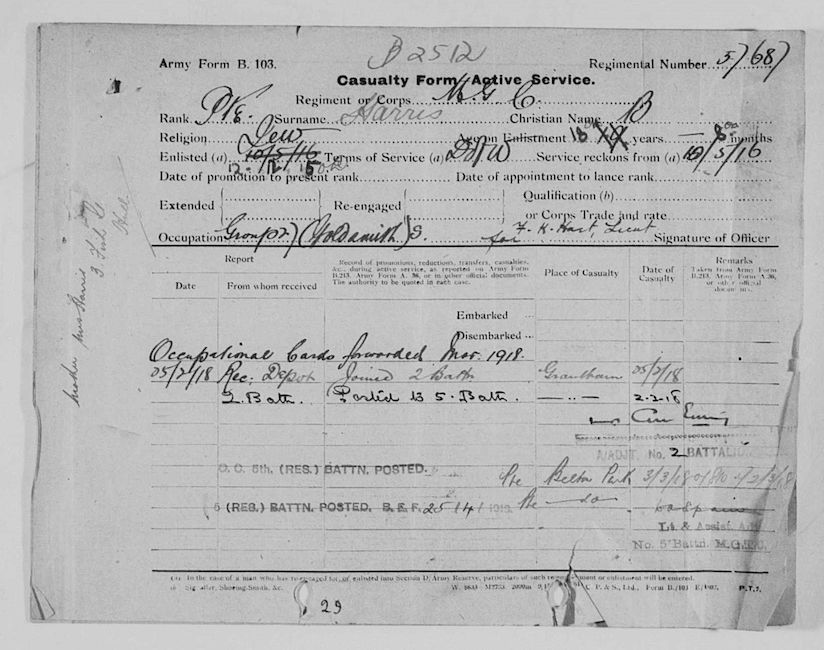 B 2512
Army Form B. 103.
Regimental Number 5768
Casualty Form—Active Service.
Regiment or Corps M. G. C.
Rank Pte. Surname Harris Christian Name B
Religion Jew Age on Enlistment 18 years 8 months
Enlisted (a) 10/5/16 Terms of Service (a) D of W Service reckons from (a) 10/5/16
12. 12. 15
Date of promotion to present rank Date of appointment to lance rank
Extended Re-engaged Qualification (b)
or Corps Trade and rate
Occupation Group 27 (Goldsmith)s. for F. K. Hart, Lieut Signature of Officer
Report
Date From whom received
Record of promotions, reductions, transfers, casualties, &c., during active service, as reported on Army Form B.213, Army Form A. 36, or in other official documents. The authority to be quoted in each case.
Place of Casualty
Date of Casualty
Remarks
Taken from Army Form B.213, Army Form A.36, or other official documents.
Embarked
Disembarked
Occupational Cards forwarded Mar. 1918
05/2/18 Rec. Depot Joined 2 Battn Grantham 05/2/18
2. Battn. Posted to 5. Battn.
A/ADJT. No. 2 BATTALION
O. C. 5th. (RES.) BATTN. POSTED. Pte Belton Park 3/3/18
5 (RES.) BATTN. POSTED. B. E. F. 25/4/1918. Pte do
Lt. & Assist. Adjt
No. 5 Battn. M.G.T.C.
(a) In the case of a man who has re-engaged for, or enlisted into Section D, Army Reserve, particulars of such re-engagement or enlistment will be entered.
(b) Signaller, Shoeing-Smith, &c.
C. P. & S., Ltd., Form B./103
P.T.O.
29
mother Mrs Harris